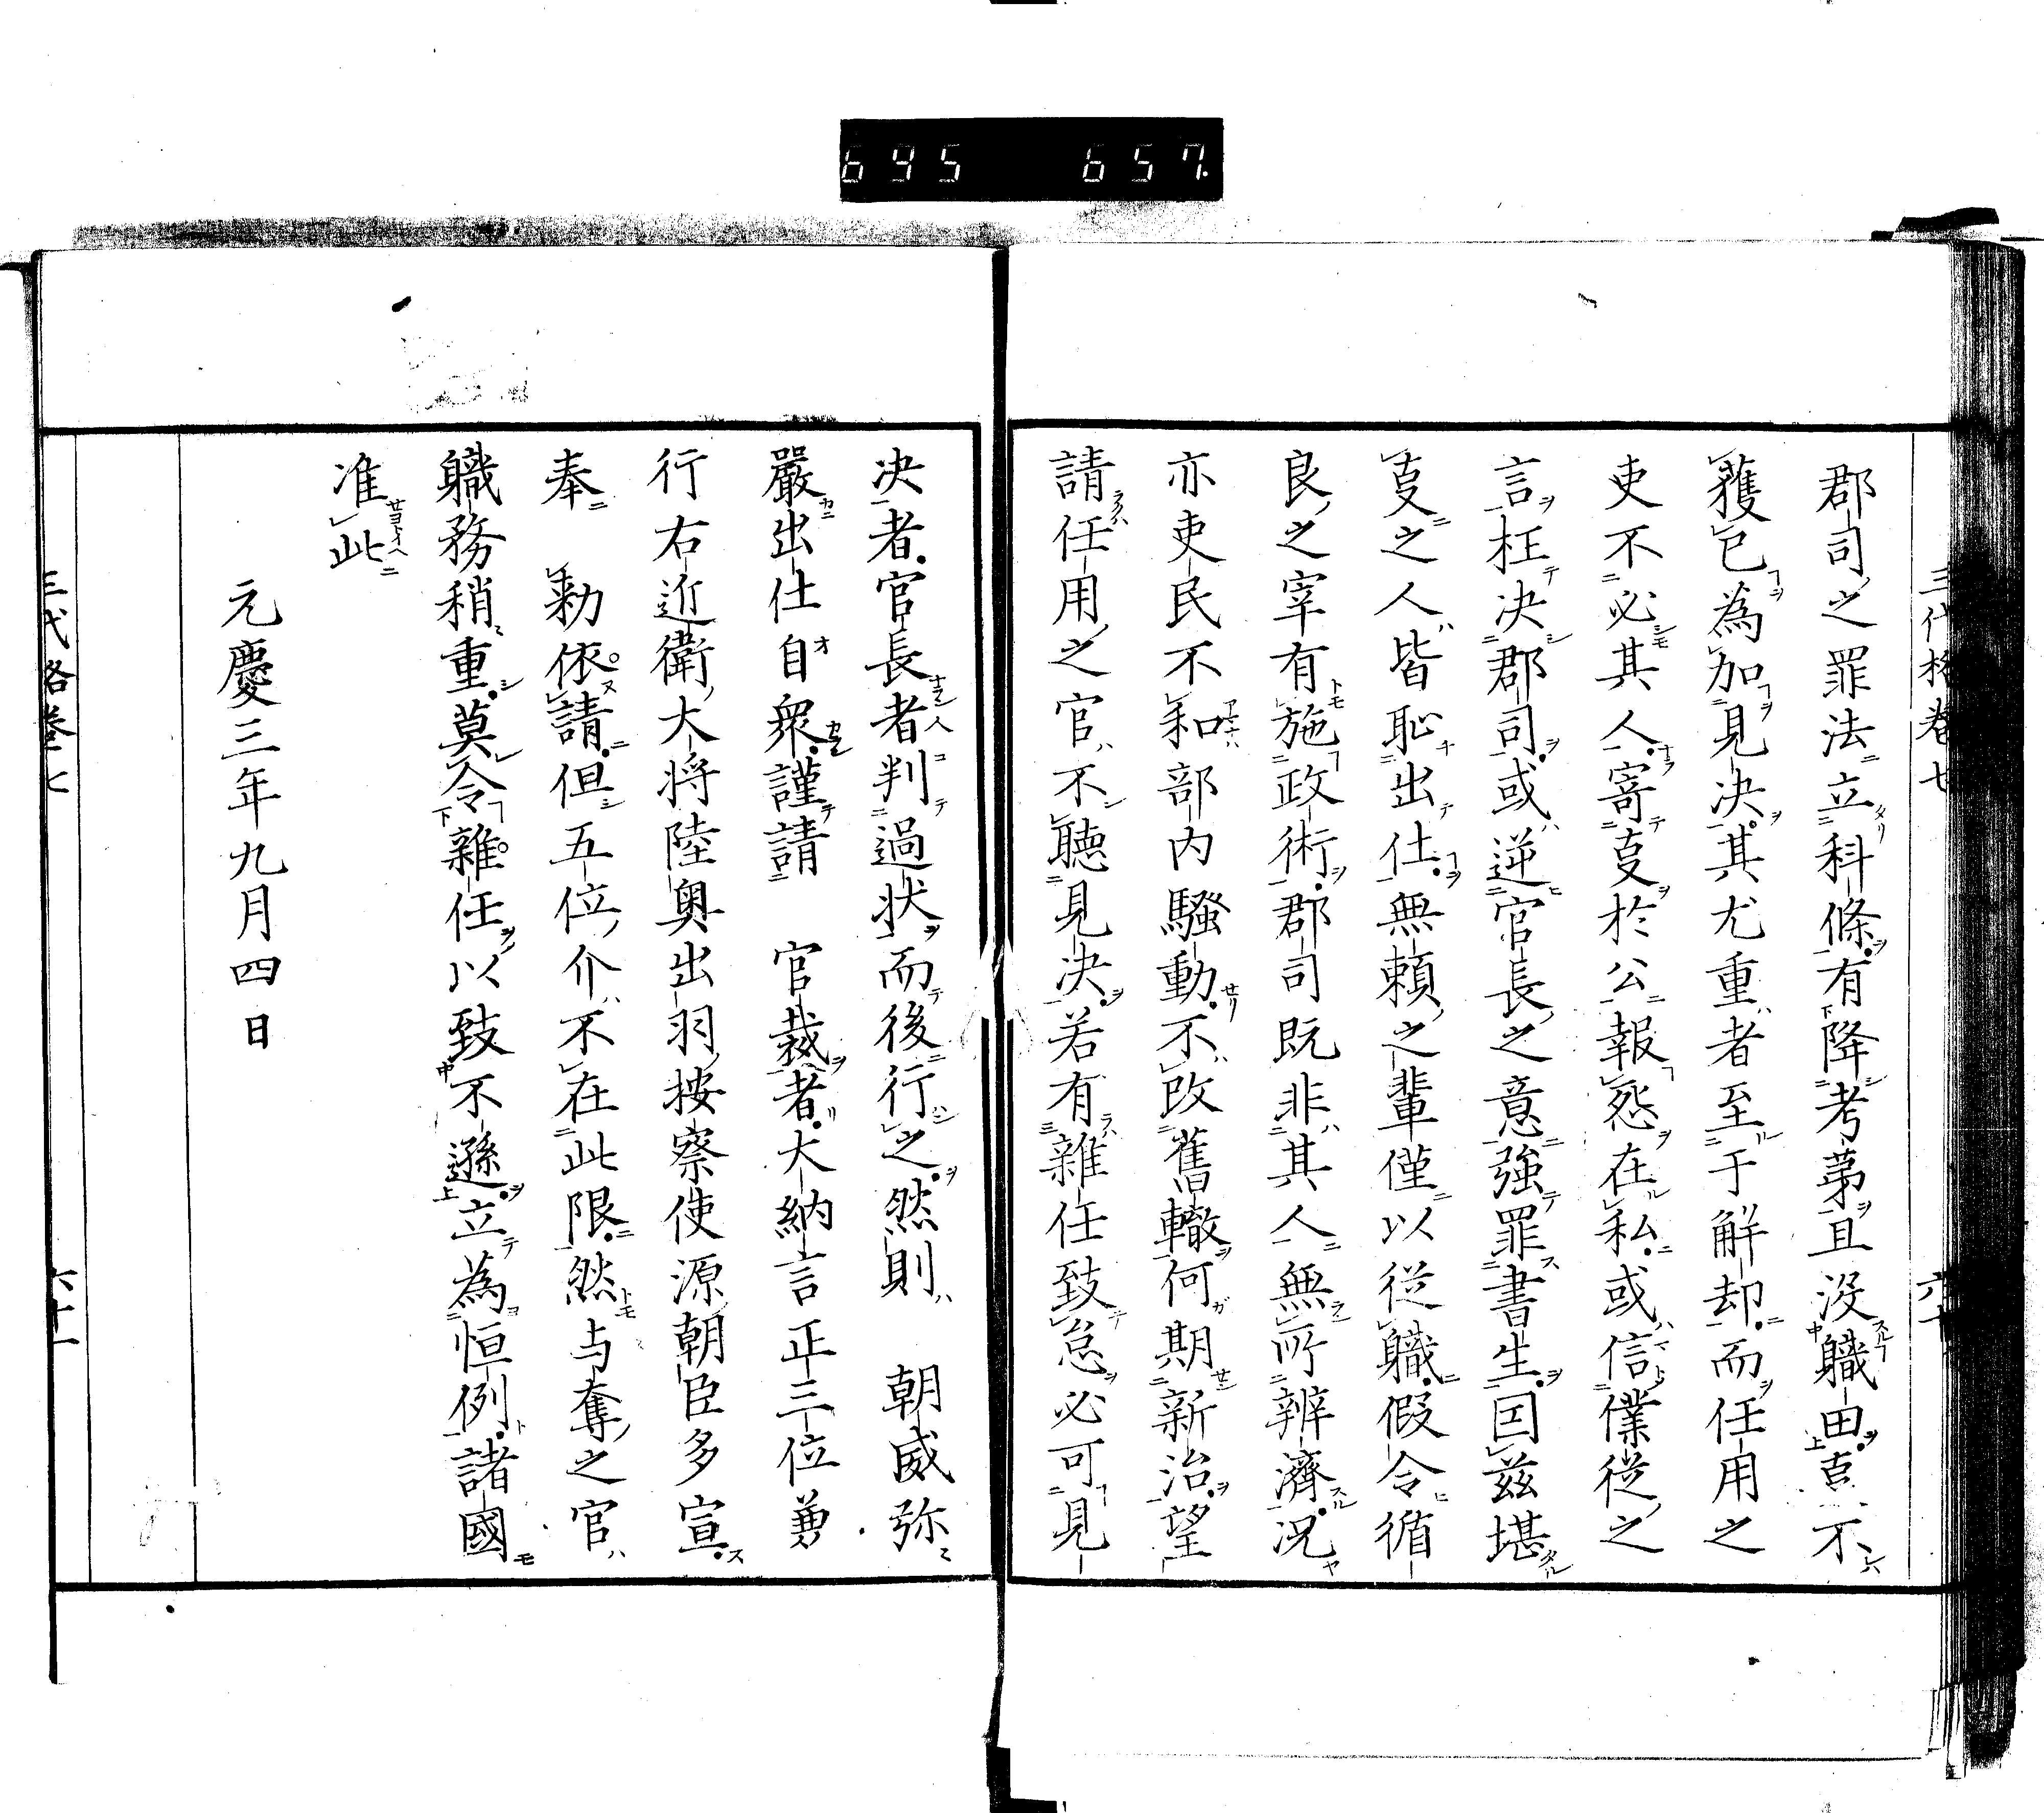 645 657
三代格卷七 六十
郡司之罪法立科條有降考第且没職田豈不
獲已為加見决其尤重者至于解却而任用之
吏不必其人寄㕝於公報怨在私或信僕從之
言枉决郡司或逆官長之意強罪書生因茲堪
㕝之人皆恥出仕無頼之輩僅以從職假令循
良之宰有施政術郡司既非其人無所辨濟况
亦吏民不和部内騒動不改舊轍何期新治望
請任用之官不聴見决若有雜任致怠必可見
决者官長者判過状而後行之然則 朝威弥
嚴出仕自衆謹請 官裁者大納言正三位兼
行右近衛大将陸奥出羽按察使源朝臣多宣
奉 勅依請但五位介不在此限然与奪之官
職務稍重莫令雜任以致不遜立為恒例諸國
准此
元慶三年九月四日
三代格卷七 六十一